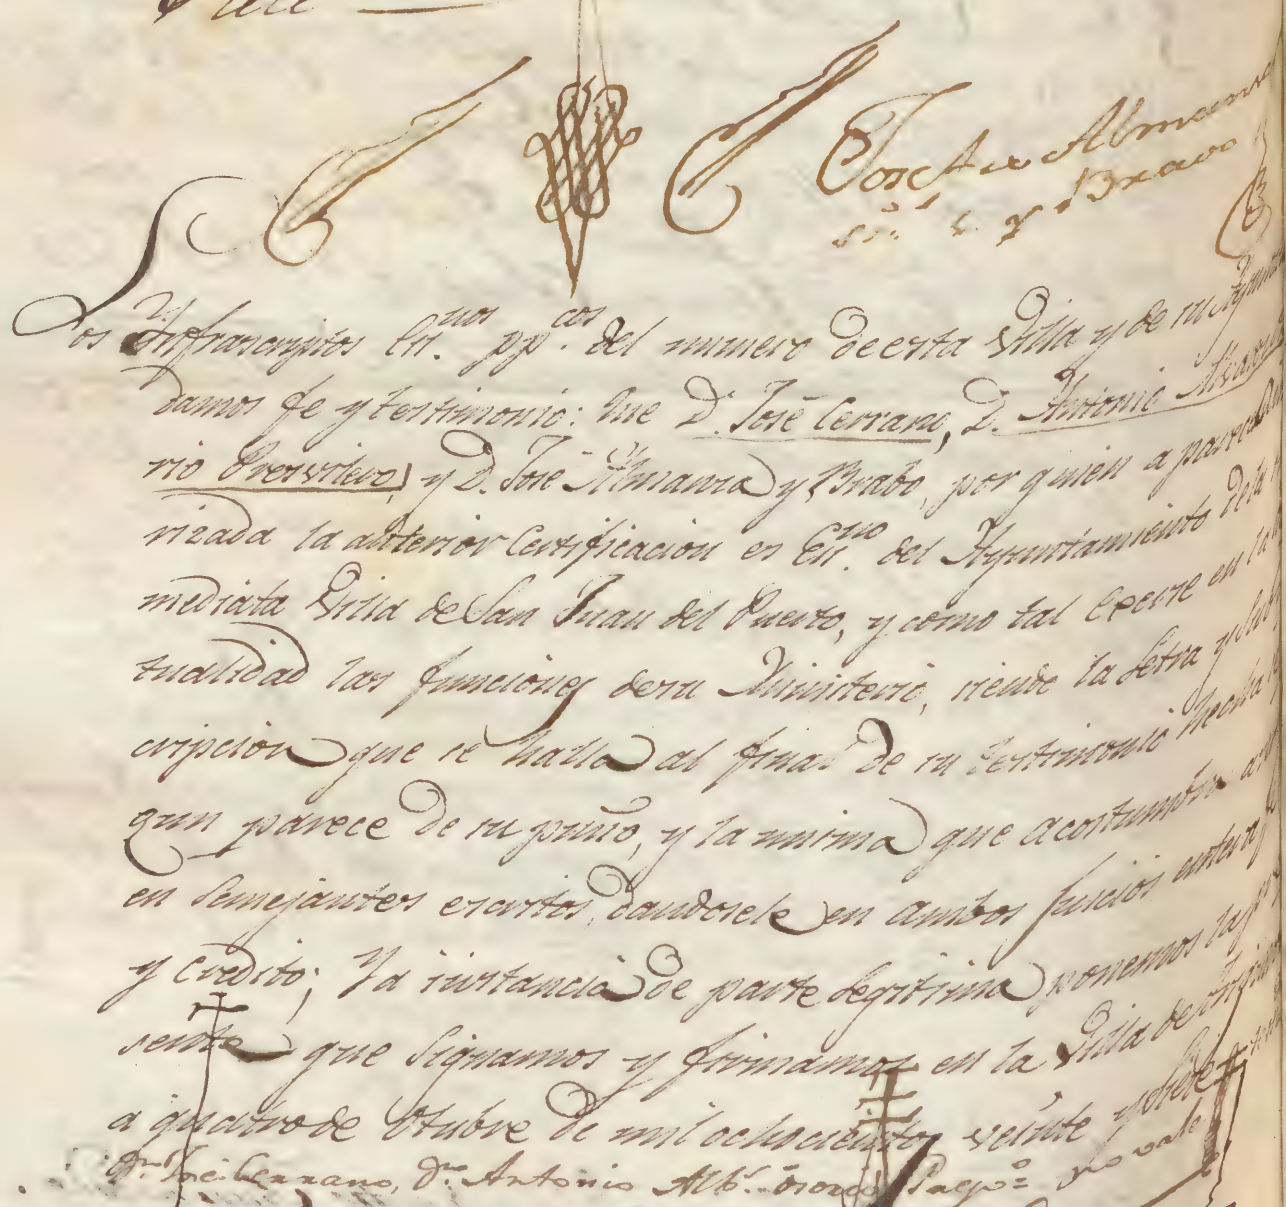 Jose Anto Almansa
y Bravo
Los Ynfrascriptos Essnos. ppcos. del numero de esta Villa y de su Ayunta
damos fe y testimonio: Que D. José Cerrano, D. Antonio
rio Presvitero, y D. José Almansa y Brabo, por quien aparece
rizada la anterior Certificacion es Essno. del Ayuntamiento de la
mediata Villa de San Juan del Puerto, y como tal Exerce en la
tualidad las funciones de su Ministerio, siendo la Letra y subs
cripcion que se halla al final de su testimonio hecha
gun parece de su puño, y la misma que acostumbra
en Semejantes escritos, dandosele en ambos Juicios entera
y Credito; Y a instancia de parte Legitima ponemos la pre
sente que Signamos y firmamos en la Villa de
a quatro de Otubre de mil ochocientos veinte y siete
Dn. José Cerrano, Dn. Antonio Albz. Osorio no vale